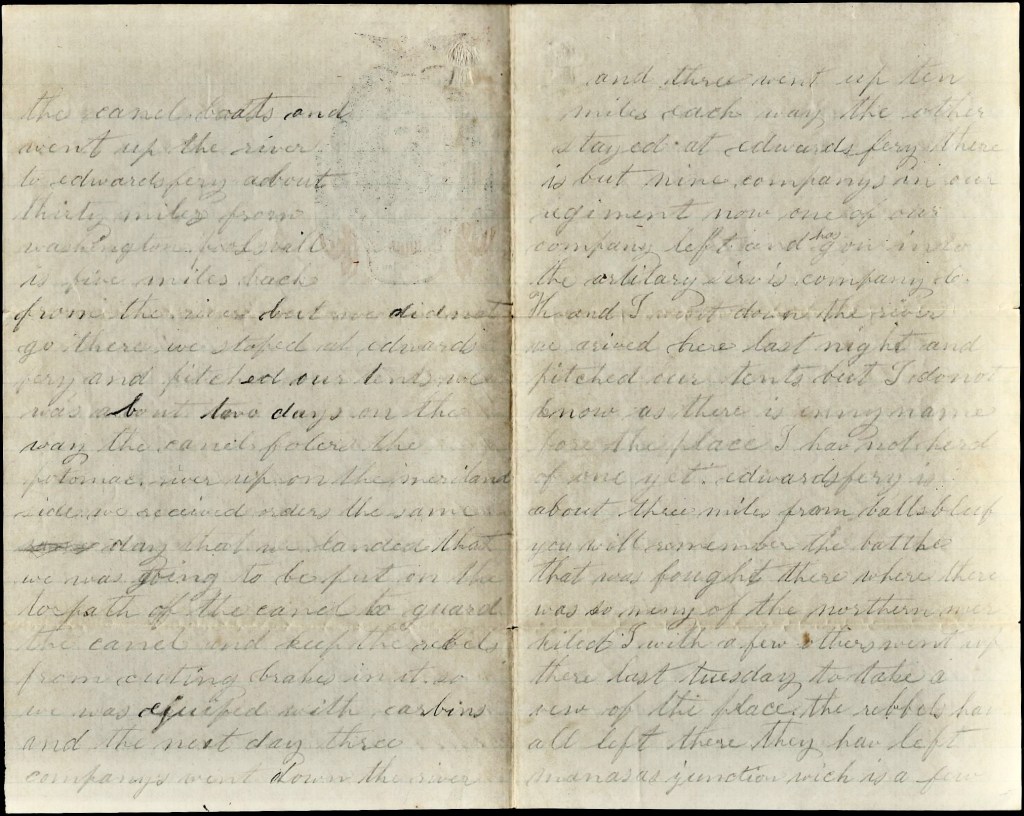 the canel boats and
went up the river
to edwardsfery about
thirty miles from
washington poolsvill
is five miles back
from the river but we did not
go there we stoped at edwards
fery and pitched our tents we
was about two days on the
way the canel folers the
potomac river up on the meriland
side we received orders the same
day that we landed that
we was going to be put on the
torpath of the canel to guard
the canel and keep the rebels
from cuting brakes in it so
we was equiped with carbins
and the next day three
companys went down the river
and three went up ten
miles each way the other
stayed at edwards fery there
is but nine companys in our
regiment now one of our
company left and has gon into
the artilary siro is company
and I went down the river
we arived here last night and
pitched our tents but I do not
know as there is enny name
fore the place I hav not herd
of one yet. edwardsfery is
about three miles from balls bluf
you will remember the battle
that was fought there where there
was so meny of the northern men
kiled I with a few others went up
there last tuesday to take a
vew of the place the rebbels hav
all left there they hav left
manasas junction wich is a few